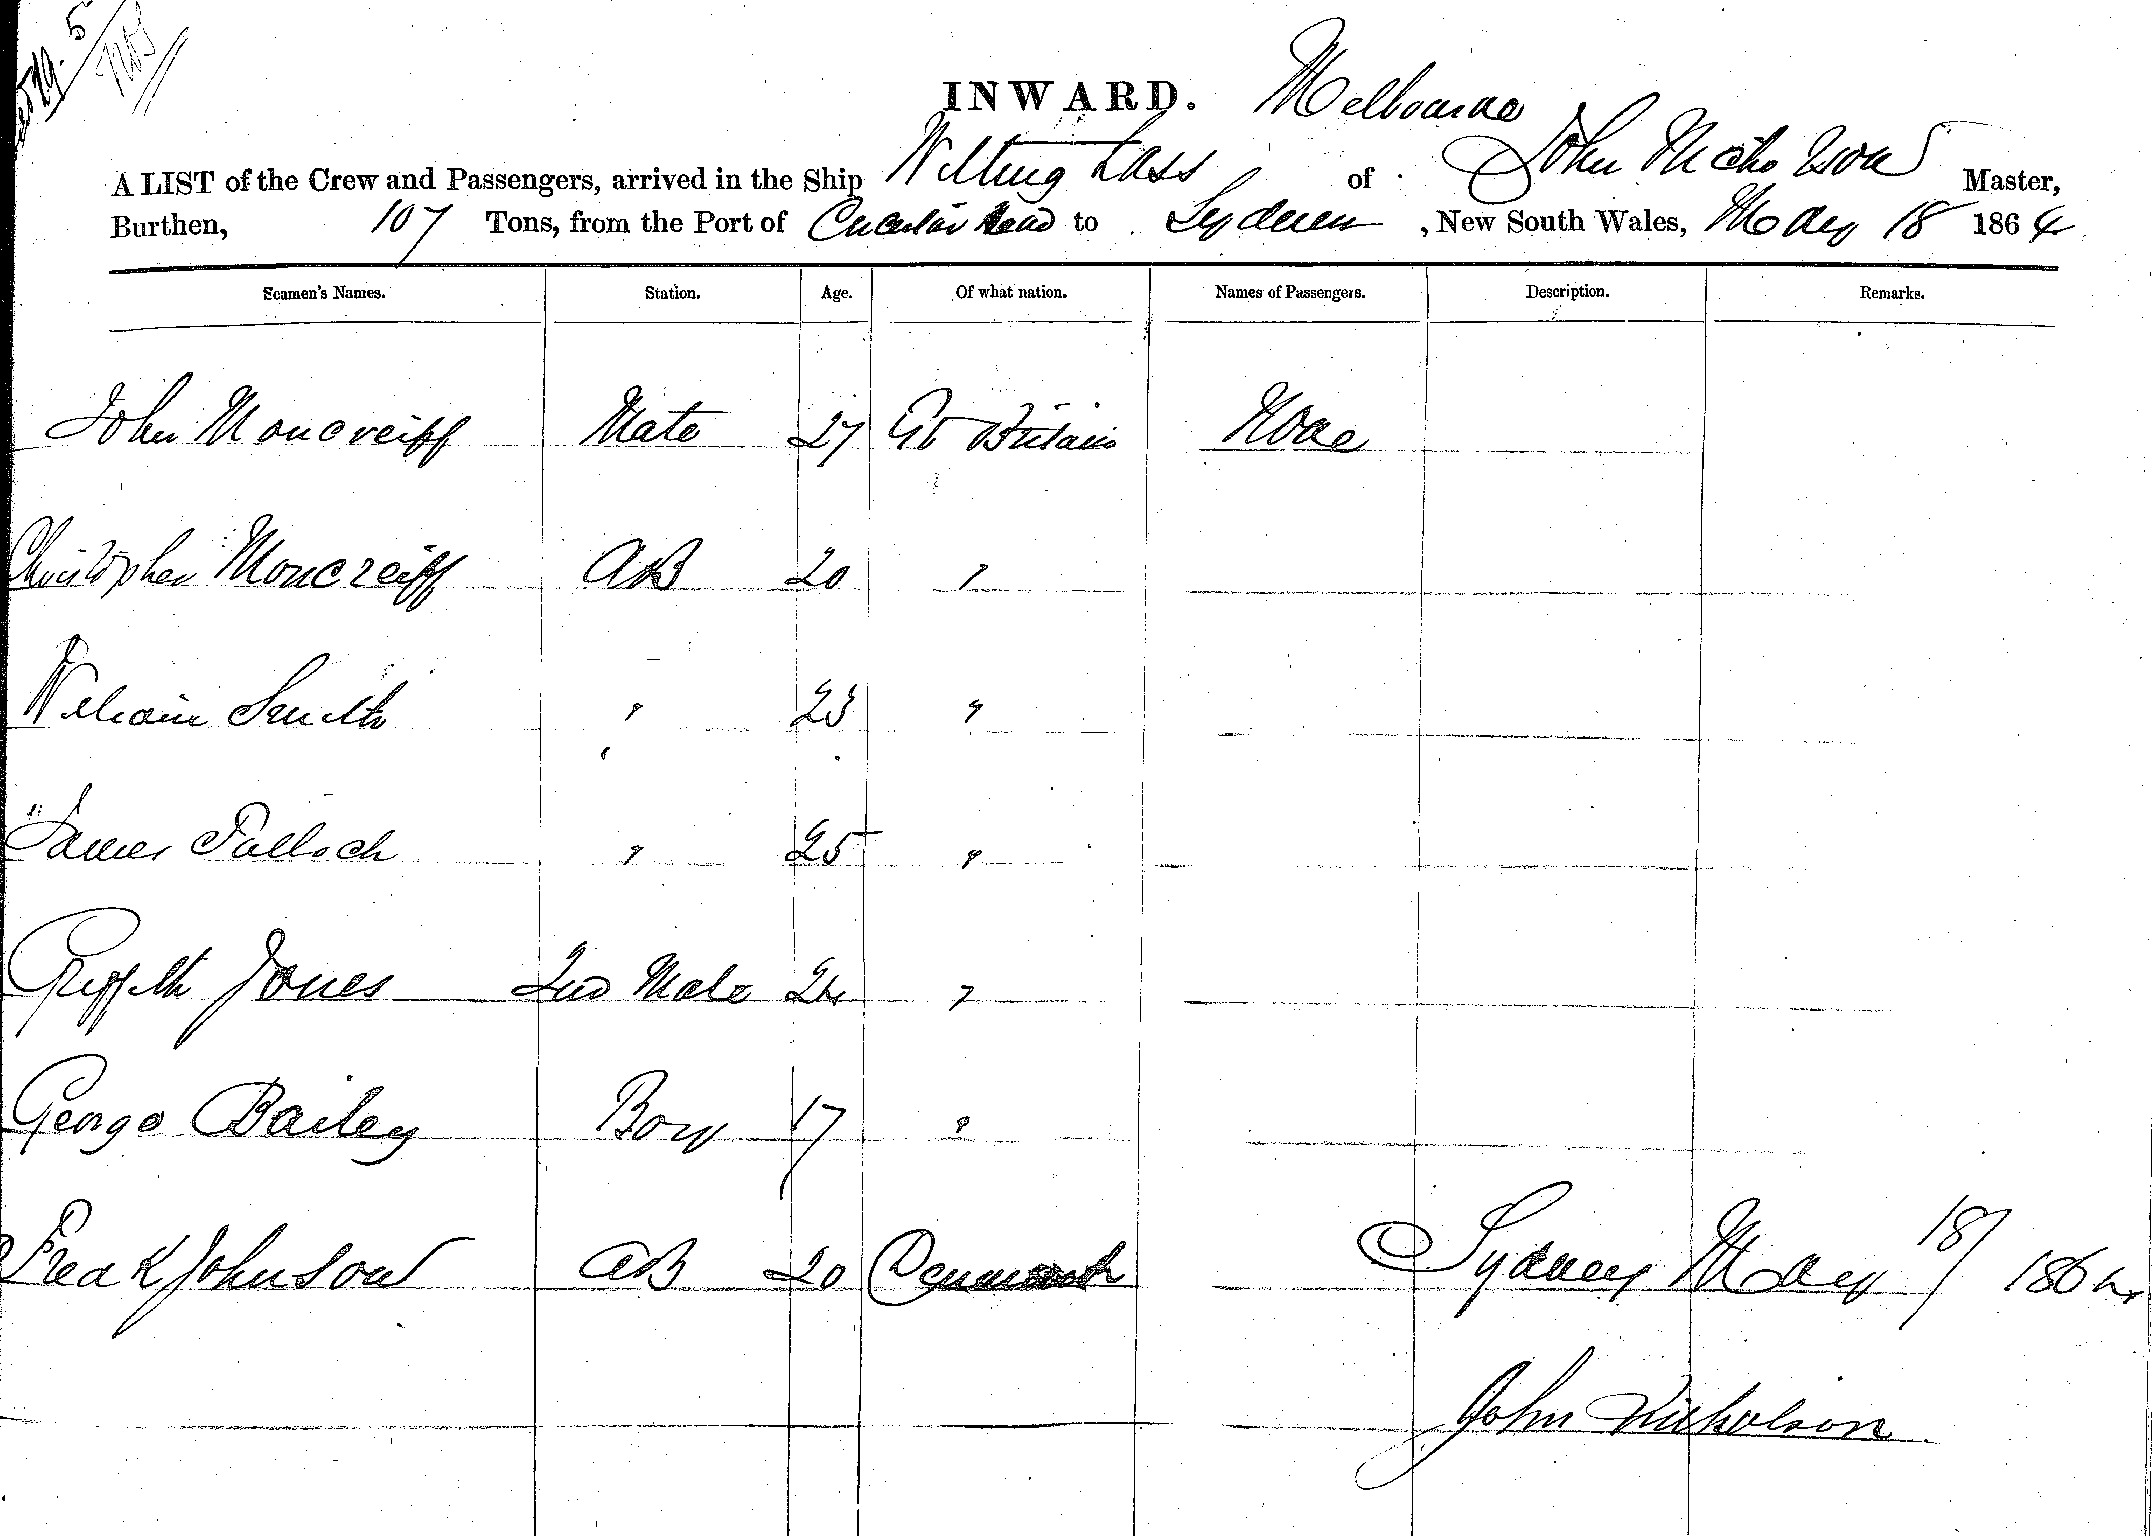 INWARD. Melbourne
A LIST of the Crew and Passengers, arrived in the Ship Wilting Lass of John Nicholson Master,
Burthen, 107 Tons, from the Port of Circular Head to Sydney, New South Wales, May 18 1864
Seamen's Names. Station. Age. Of what nation. Names of Passengers. Description. Remarks.
John Moncreiff Mate 27 Gt Britain None
Christopher Moncreiff AB 20 "
William Smith " 23 "
James Tulloch " 25 "
Griffith Jones 2nd Mate 24 "
George Bailey Boy 17 "
Fredk Johnson AB 20 Denmark Sydney May 18/ 1864
John Nicholson